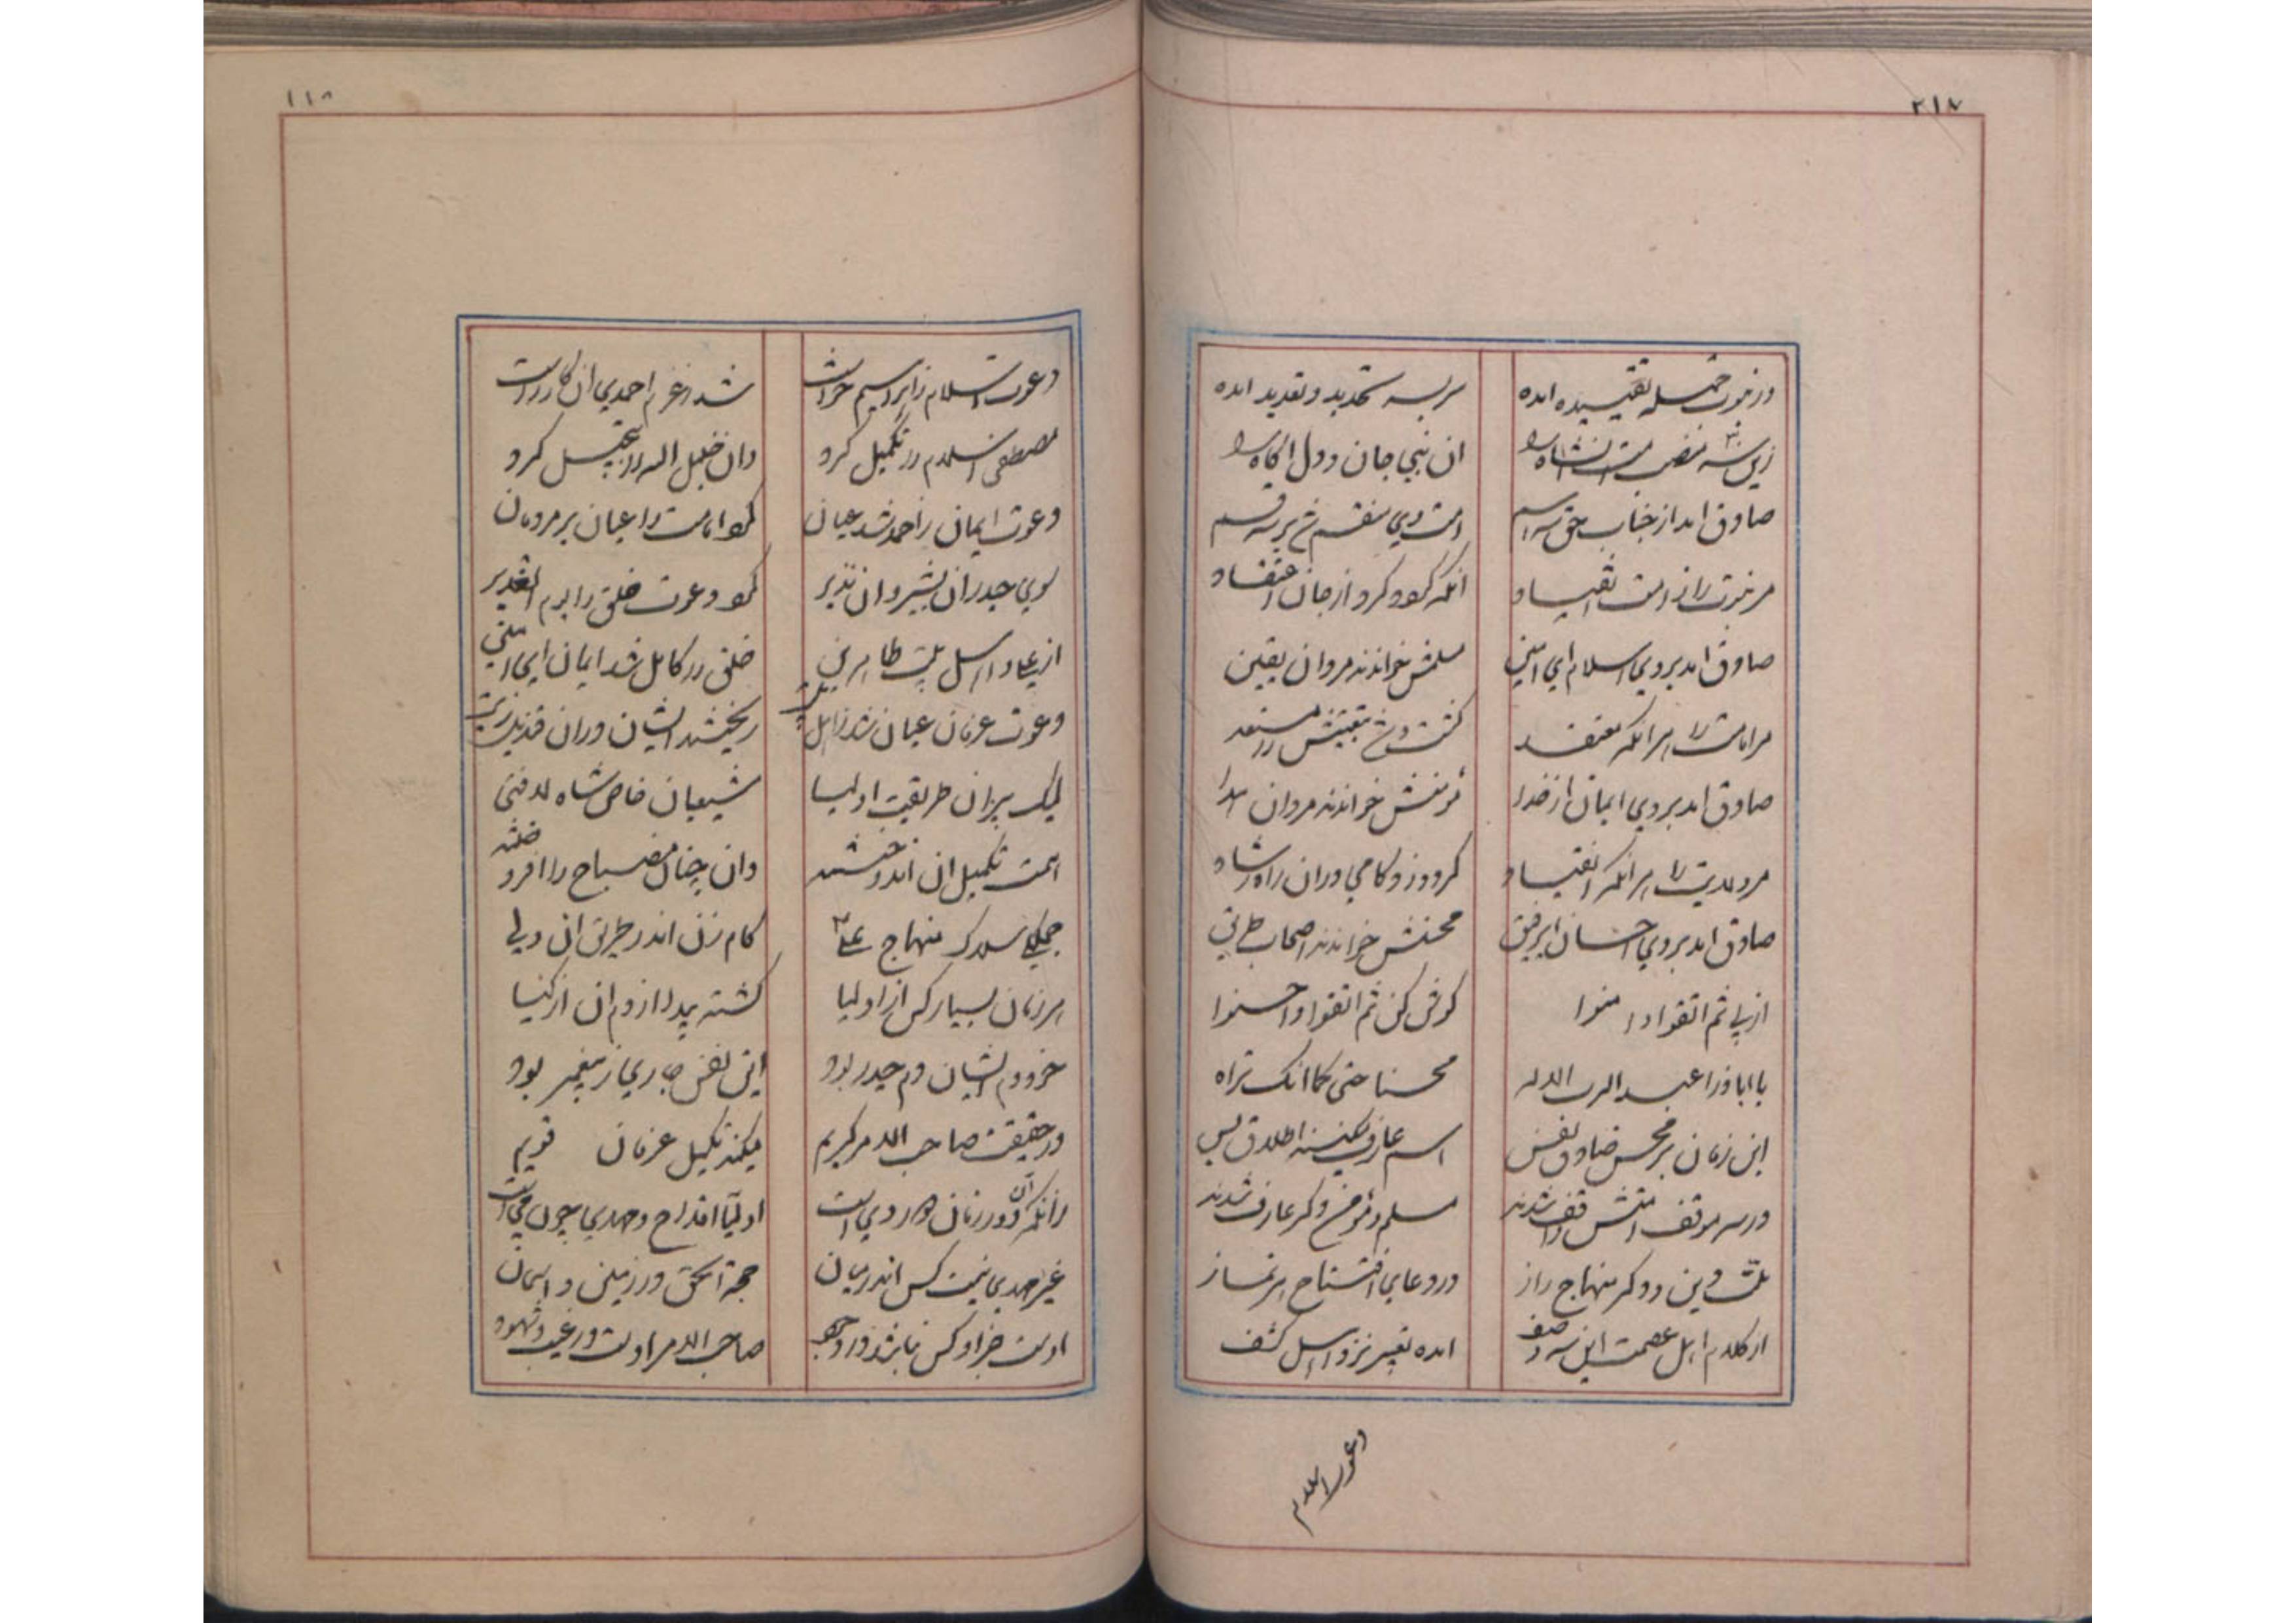 ۲۱۷
در نبوت جمله تقییده امده
بر سه تحدید و تقدید امده
زین سه منصب است انشاه را
ان نبی جان و دل اکاه را
صادق امد از جناب حق سه اسم
امت وی منقسم شد بر سه قسم
مر نبوت را ز امت انقیاد
انکه کو کرد از جان اعتقاد
صادق امد بروی اسلام ای امین
مسلمش خواندند مردان یقین
مر امامت را هر انکو معتقد
صادق امد بروی ایمان از خدا
مومنش خواندند مردان
مر ولایت را هر انکو انقیاد
کرد و زد کامی دران راه رشاد
صادق امد بروی احسان ای رفیق
محسنش خواندند اصحاب طریق
از پی ثم اتقوا و امنوا
کوش کن ثم اتقوا و احسنوا
یا اباذر اعبد الرب الاله
محسنا حتی کما انک تراه
این زمان بر محسن صادق نفس
اسم عارف میکنند اطلاق بس
در سه موقف امتش واقف شدند
مسلم و مومن و کر عارف شدند
ملت و دین و دکر منهاج راز
در دعای افتتاح هر نماز
از کلام اهل عصمت این سه وصف
امده تعبیر نزد اهل کشف
دعوت اسلام
۱۱۸
دعوت اسلام ز ابراهیم خواست
شد ز عزم احمدی ان کار راست
مصطفی اسلام را تکمیل کرد
وان خلیل الله را تبجیل کرد
دعوت ایمان ز احمد شد عیان
کو امامت را عیان بر مردمان
سوی حیدر ان بشیر و ان نذیر
کو دعوت خلق را یوم الغدیر
از عباد اهل بیت طاهرین
خلق را کامل شد ایمان ای امین
دعوت عرفان عیان شد ز اهل بیت
ریختند ایشان دران قندیل زیت
لیک پیران طریقت اولیا
شیعیان خاص شاه لافتی
همت تکمیل ان اندوختند
وان چنان مصباح را افروختند
جملکی سلاک منهاج علی
کام زن اندر طریق ان ولی
هر زمان بسیار کس از اولیا
کشته پیدا از دم ان ازکیا
خود دم ایشان دم حیدر بود
این نفس جاری ز پیغمبر بود
در حقیقت صاحب الامر کریم
میکند تکمیل عرفان قویم
زانکه ان دور زمان دور وی است
اولیا اقداح و مهدی چون می است
غیر مهدی نیست کس اندر میان
حجة الحق در زمین و اسمان
اوست جز او کس نباشد در وجود
صاحب الامر اوست در غیب و شهود